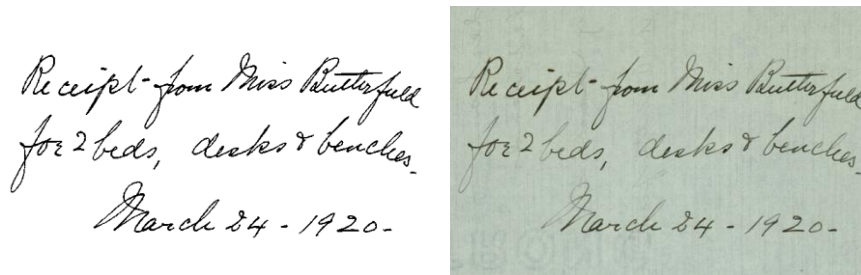 Receipt- from Miss Butterfield
for 2 beds, desks & benches.
March 24 - 1920-
Receipt- from Miss Butterfield
for 2 beds, desks & benches.
March 24 - 1920-